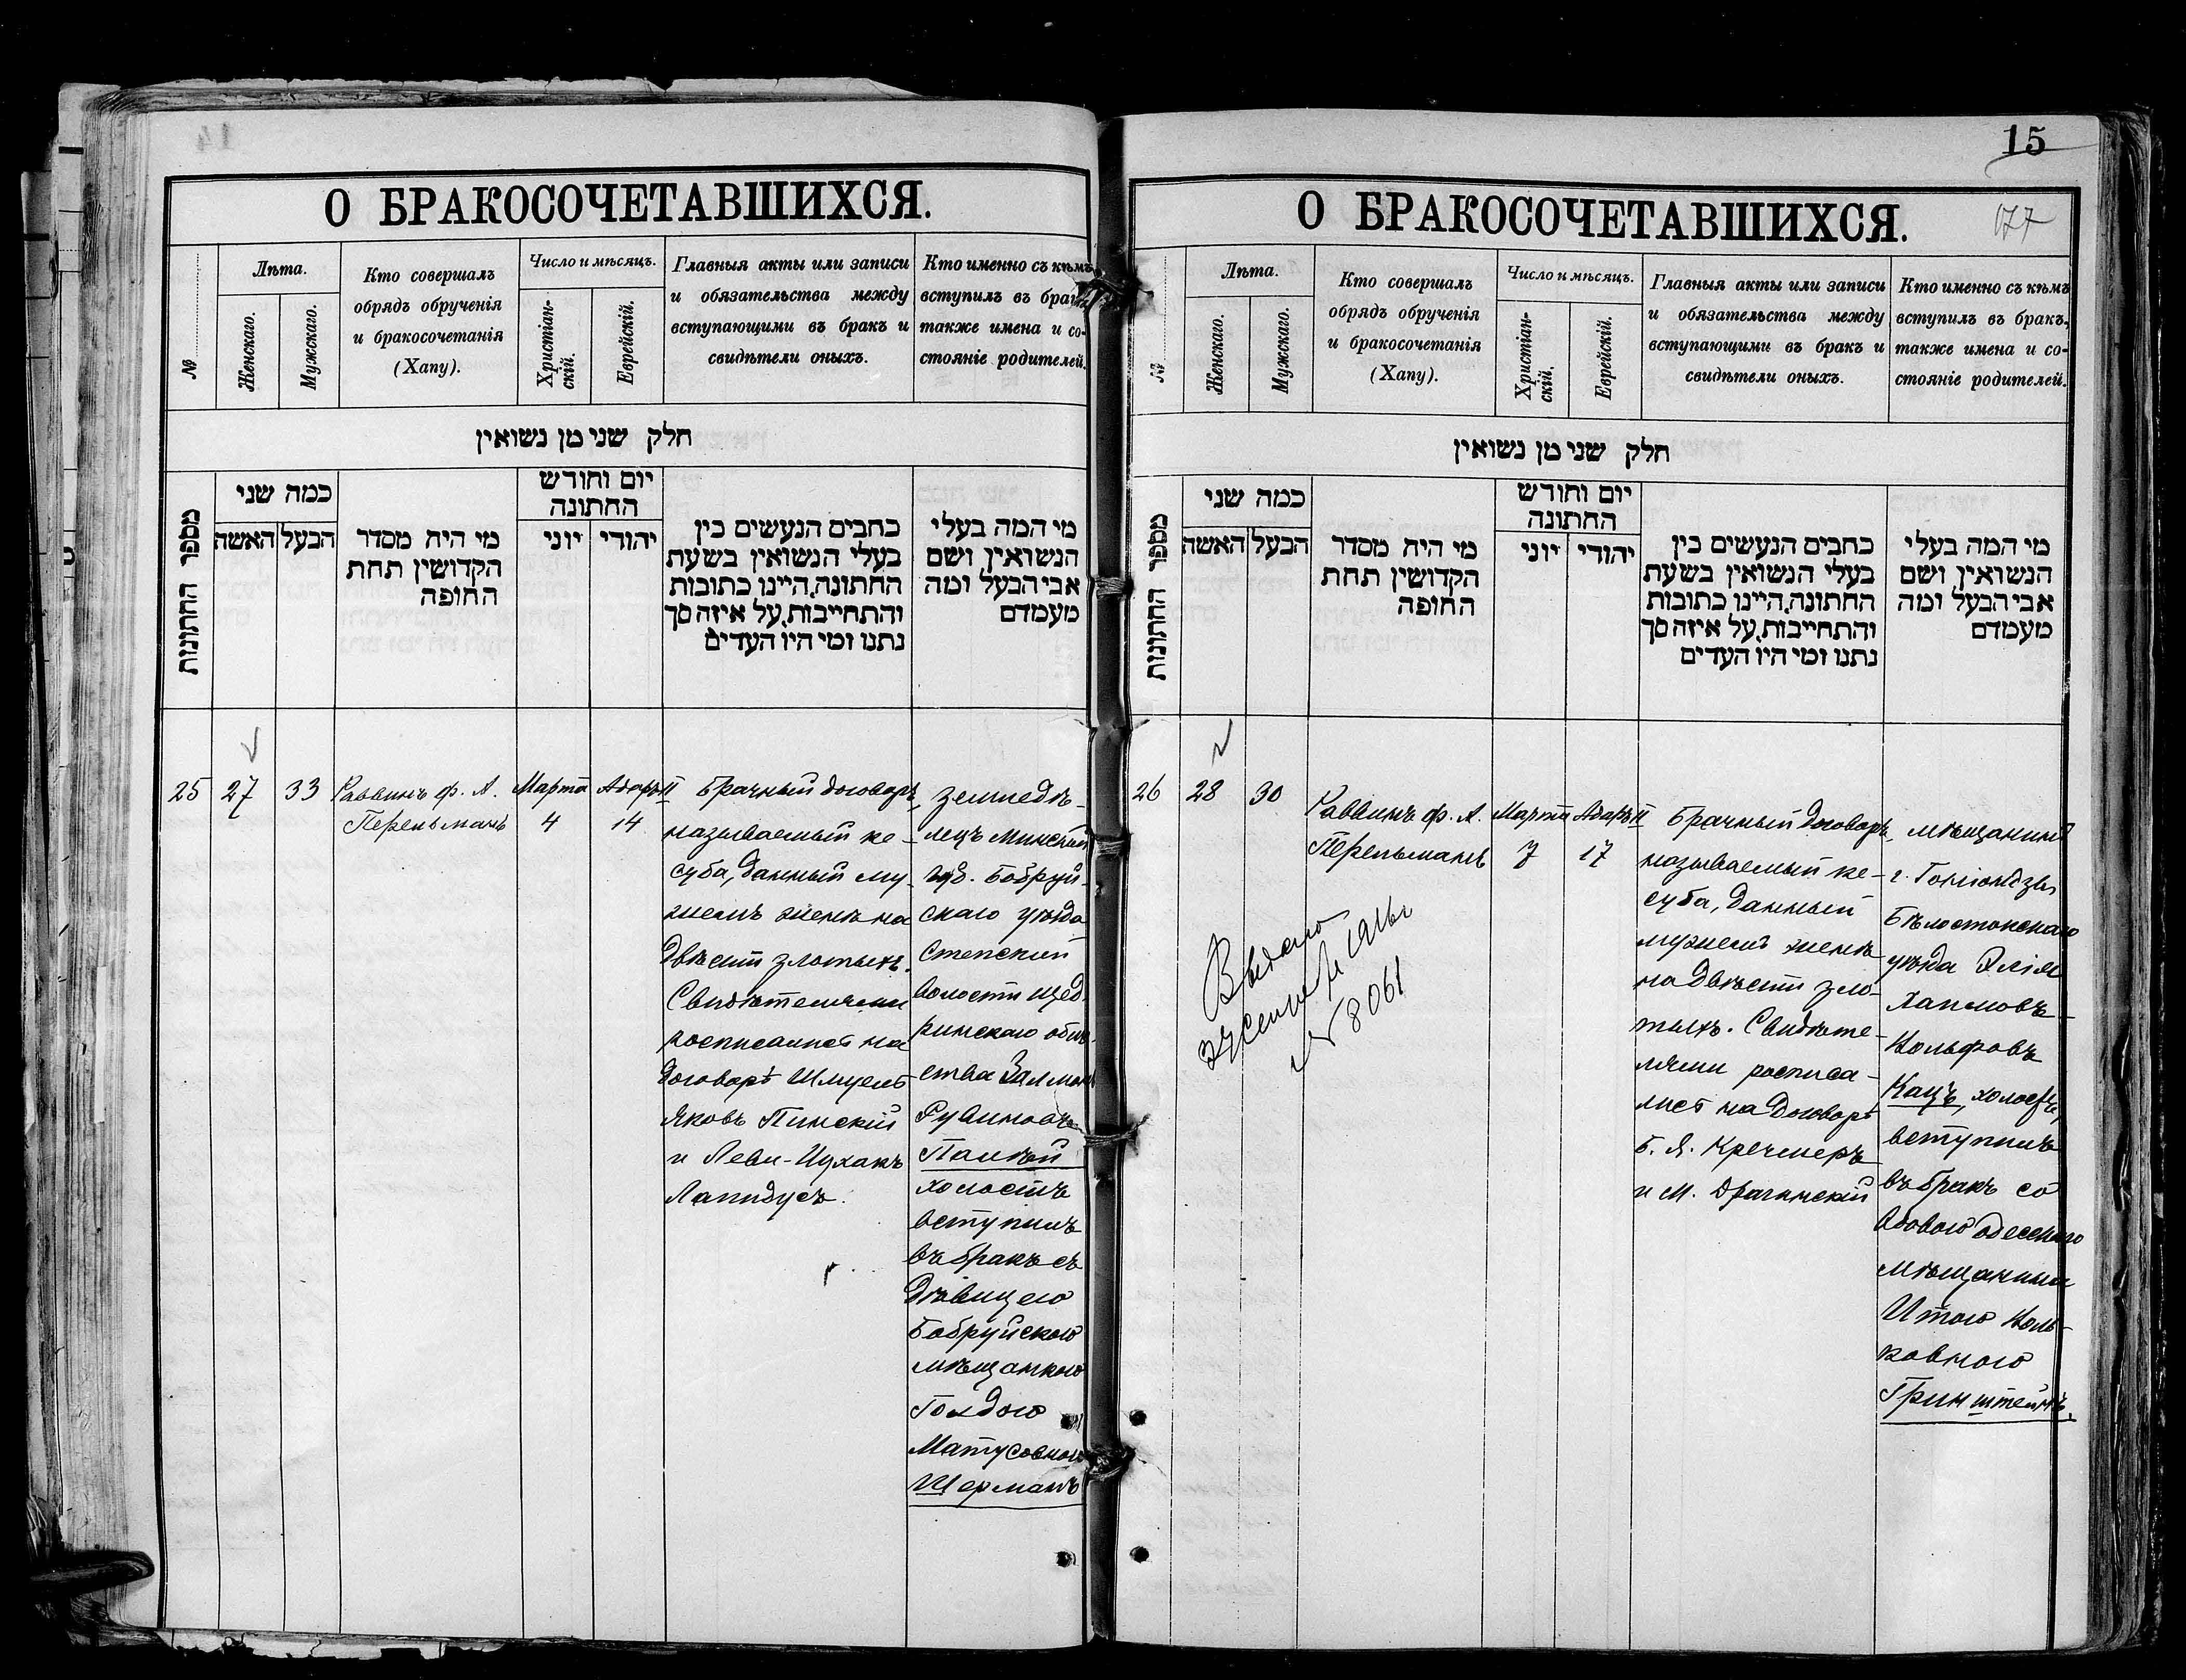 14
О БРАКОСОЧЕТАВШИХСЯ.
№
Лѣта.
Женскаго.
Мужскаго.
Кто совершалъ
обрядъ обрученія
и бракосочетанія
(Хапу).
Число и мѣсяцъ.
Христіан-
скій.
Еврейскій.
Главныя акты или записи
и обязательства между
вступающими въ бракъ и
свидѣтели оныхъ.
Кто именно съ кѣмъ
вступилъ въ бракъ,
также имена и со-
стояніе родителей.
חלק שני מן נשואין
מספר החתונות
כמה שני
האשה
הבעל
מי היה מסדר
הקדושין תחת
החופה
יום וחודש
החתונה
יוני
יהודי
כתבים הנעשים בין
בעלי הנשואין בשעת
החתונה, היינו כתובות
והתחייבות, על איזה סך
נתנו ומי היו העדים
מי המה בעלי
הנשואין ושם
אבי הבעל ומה
מעמדם
25
27
33
Раввинъ ф. А.
Перельманъ
Марта
4
Адаръ II
14
Брачный договоръ,
называемый ке-
суба, данный му-
жемъ женѣ на
двѣсти злотыхъ.
Свидѣтелями
росписались на
договорѣ Шмуель
Яковъ Пинскій
и Леви-Ицхакъ
Лапидусъ.
Земледѣ-
лецъ Минской
губ. Бобруй-
скаго уѣзда
Степской
волости Щед-
ринскаго обще-
ства Залманъ
Рувиновъ
холостъ
вступилъ
въ бракъ съ
дѣвицею
Бобруйскою
мѣщанкою
Голдою
Матусовною
Шерманъ
15
177
О БРАКОСОЧЕТАВШИХСЯ.
№
Лѣта.
Женскаго.
Мужскаго.
Кто совершалъ
обрядъ обрученія
и бракосочетанія
(Хапу).
Число и мѣсяцъ.
Христіан-
скій.
Еврейскій.
Главныя акты или записи
и обязательства между
вступающими въ бракъ и
свидѣтели оныхъ.
Кто именно съ кѣмъ
вступилъ въ бракъ,
также имена и со-
стояніе родителей.
חלק שני מן נשואין
מספר החתונות
כמה שני
האשה
הבעל
מי היה מסדר
הקדושין תחת
החופה
יום וחודש
החתונה
יוני
יהודי
כתבים הנעשים בין
בעלי הנשואין בשעת
החתונה, היינו כתובות
והתחייבות, על איזה סך
נתנו ומי היו העדים
מי המה בעלי
הנשואין ושם
אבי הבעל ומה
מעמדם
26
28
30
Раввинъ ф. А.
Перельманъ
Марта
7
Адаръ II
17
Брачный договоръ,
называемый ке-
суба, данный
мужемъ женѣ
на двѣсти зло-
тыхъ. Свидѣте-
лями росписа-
лись на договорѣ
Б. Я. Кречмеръ
и М. Драгинскій
мѣщанинъ
г. Гоніондзы
Бѣлостокскаго
уѣзда Элія
Хаимовъ-
Вольфовъ
Кацъ, холостъ,
вступилъ
въ бракъ со
вдовою одесскаго
мѣщанина
Итою Воль-
ковною
Гринштейнъ.
№ 8061